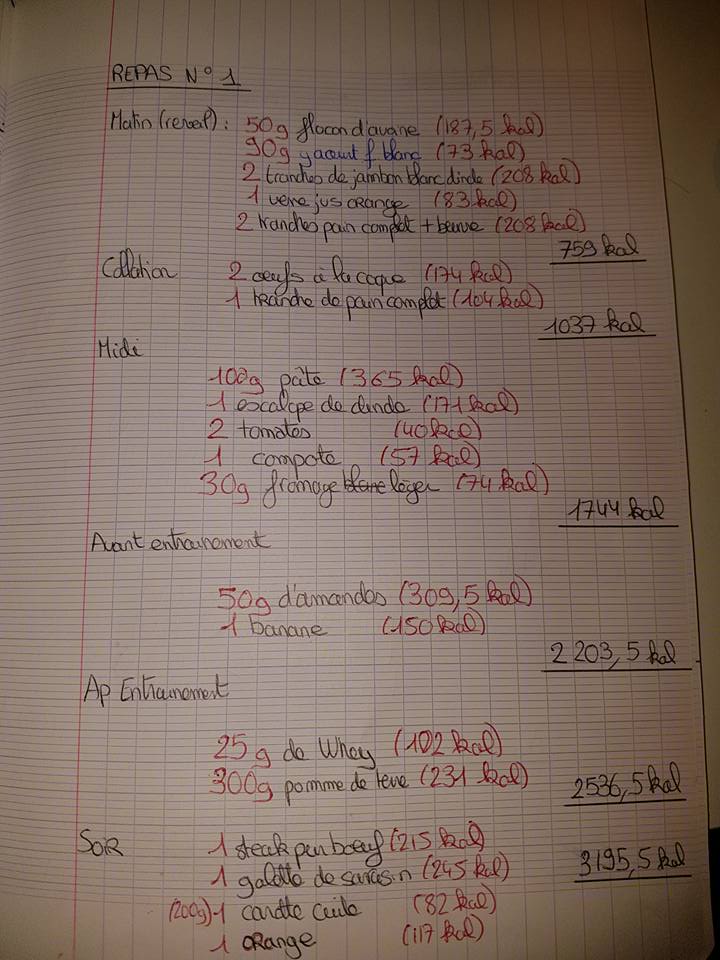 REPAS N° 1
Matin (reveil) : 50g flocon d'avoine (187,5 kal)
90g yaourt f. blanc (73 kal)
2 tranches de jambon blanc dinde (208 kal)
1 verre jus orange (83 kal)
2 tranches pain complet + beurre (208 kal)
759 kal
Collation 2 oeufs à la coque (174 kal)
1 tranche de pain complet (104 kal)
1037 kal
Midi
100g pâte (365 kal)
1 escalope de dinde (171 kal)
2 tomates (40 kal)
1 compote (57 kal)
30g fromage blanc léger (74 kal)
1744 kal
Avant entrainement
50g d'amandes (309,5 kal)
1 banane (150 kal)
2 203,5 kal
Ap Entrainement
25 g de Whey (102 kal)
300g pomme de terre (231 kal)
2536,5 kal
SOIR 1 steak pur boeuf (215 kal)
1 galette de sarasin (245 kal)
3195,5 kal
(200g)-1 carotte cuite (82 kal)
1 ORange (117 kal)